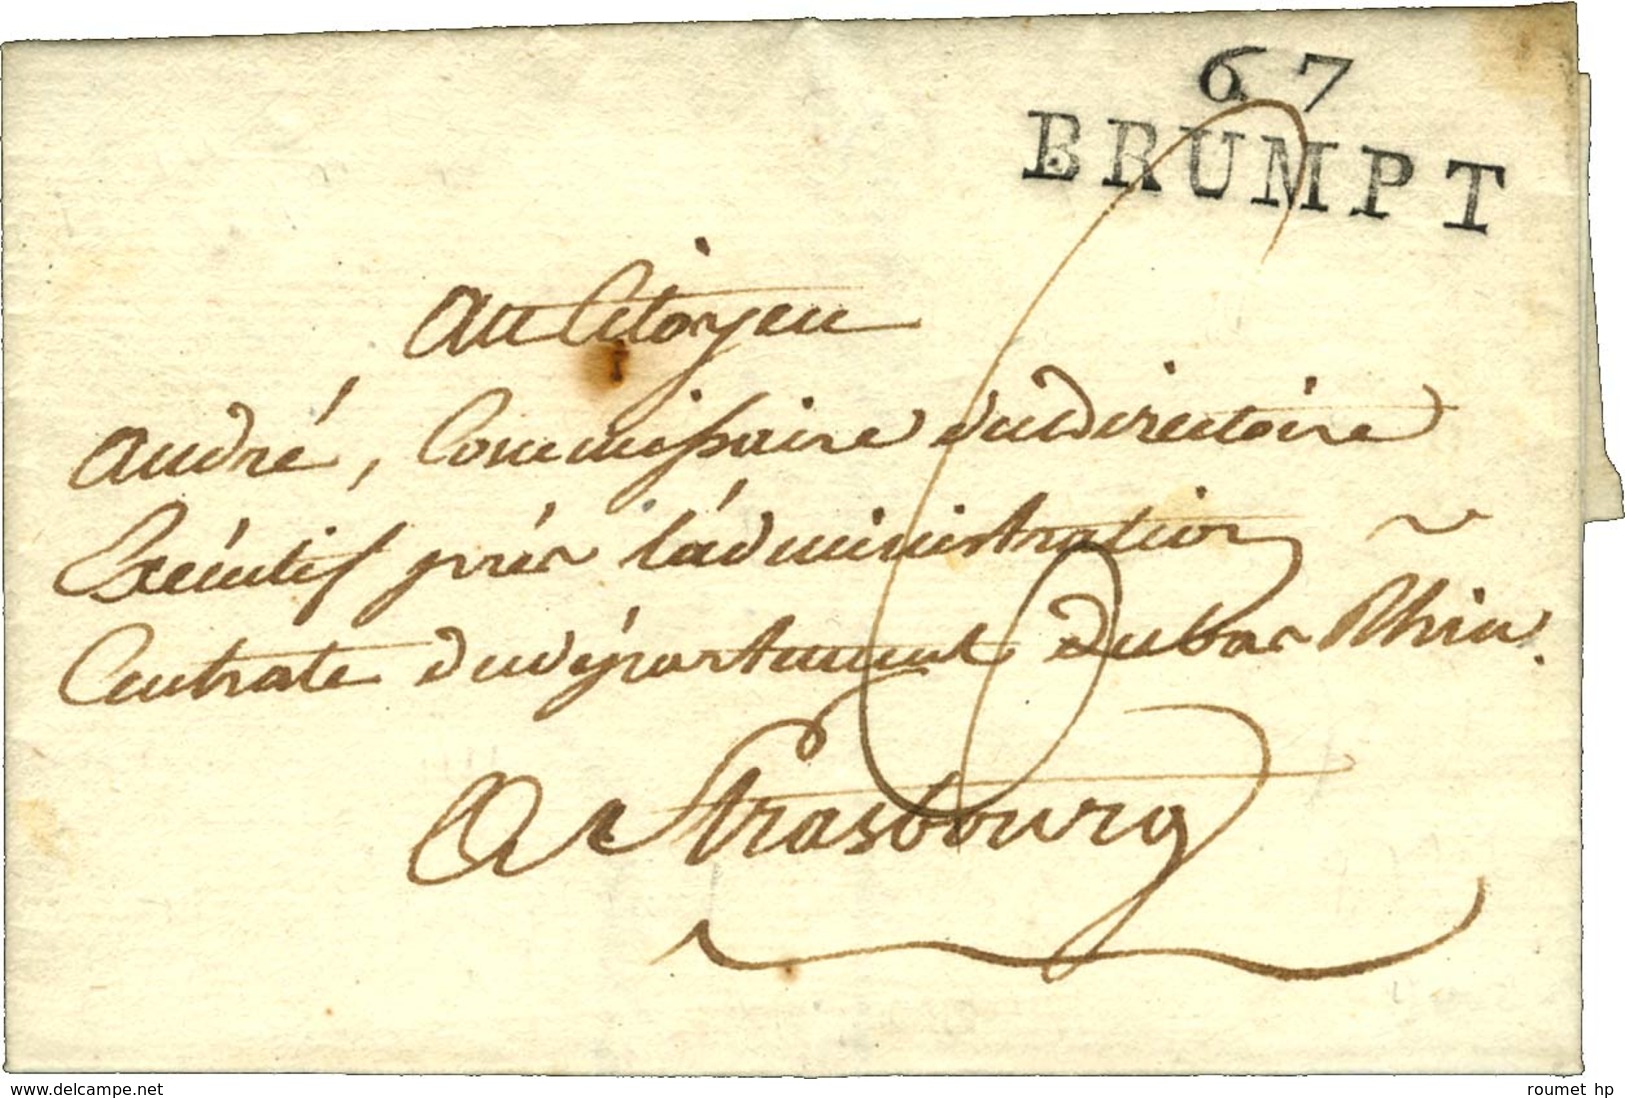 67
BRUMPT
Au Citoyen
André, Commissaire du directoire
Exécutif près l'administration
Centrale du département du bas Rhin.
A Strasbourg
www.delcampe.net
roumet hp